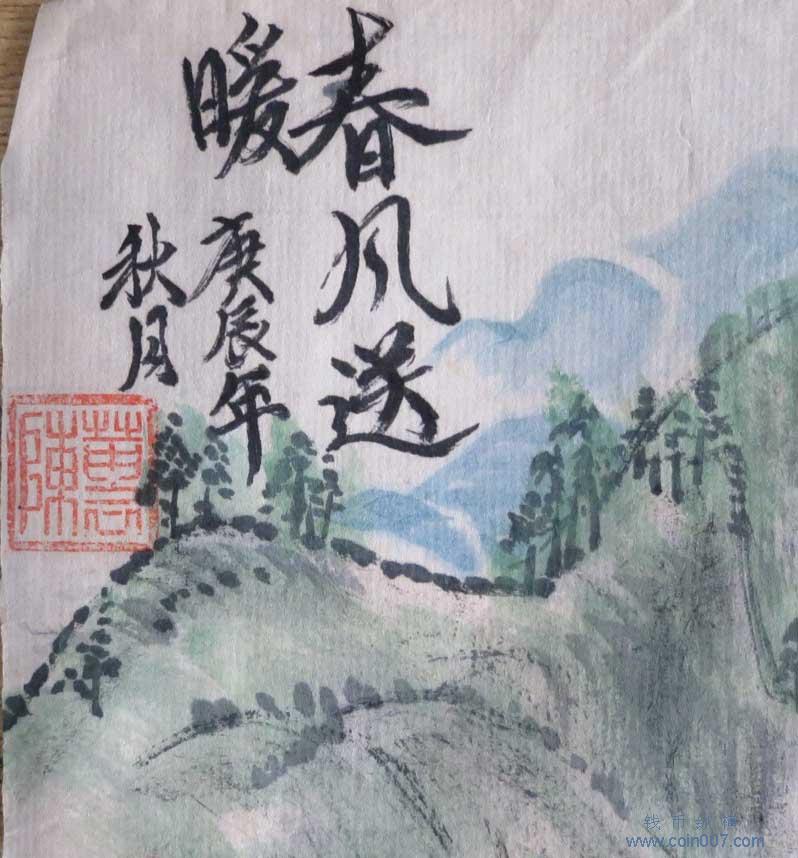 春风送
暖
庚辰年
秋月
陳
www.coin007.com